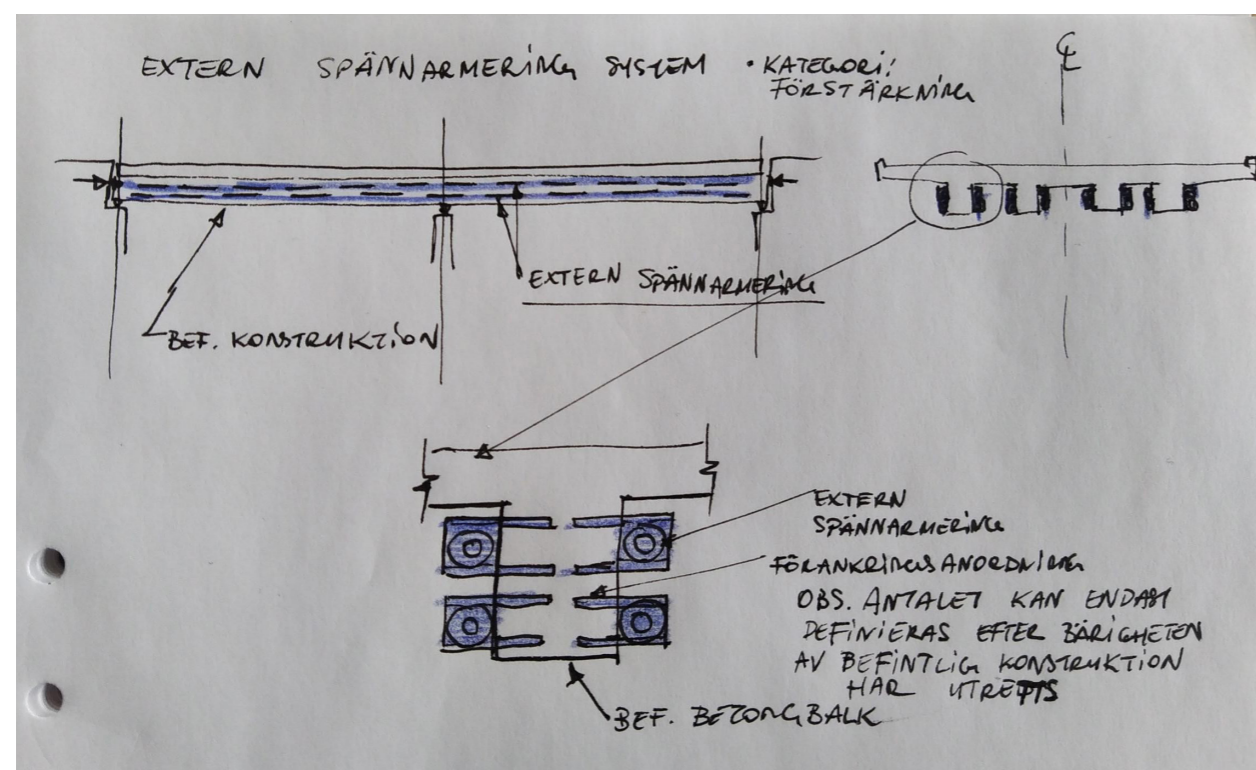 EXTERN SPÄNNARMERING SYSTEM
• KATEGORI:
FÖRSTÄRKNING
CL
EXTERN SPÄNNARMERING
BEF. KONSTRUKTION
EXTERN
SPÄNNARMERING
FÖRANKRINGSANORDNING
OBS. ANTALET KAN ENDAST
DEFINIERAS EFTER BÄRIGHETEN
AV BEFINTLIG KONSTRUKTION
HAR UTRETTS
BEF. BETONGBALK